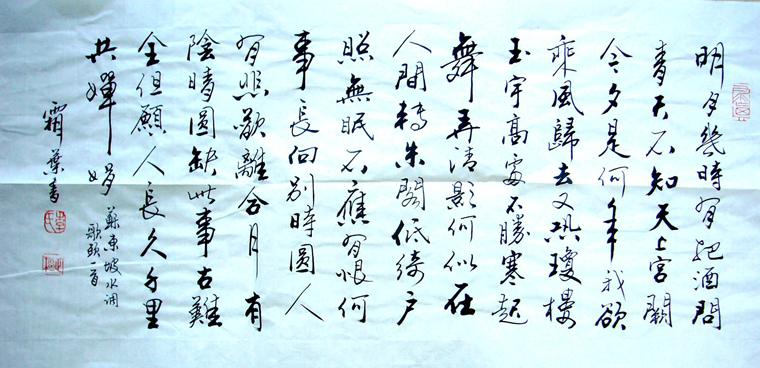 明月幾時有把酒問
青天不知天上宮闕
今夕是何年我欲
乘風歸去又恐瓊樓
玉宇高處不勝寒起
舞弄清影何似在
人間轉朱閣低綺戶
照無眠不應有恨何
事長向別時圓人
有悲歡離合月有
陰晴圓缺此事古難
全但願人長久千里
共嬋娟
蘇東坡水調
歌頭一首
霜葉書